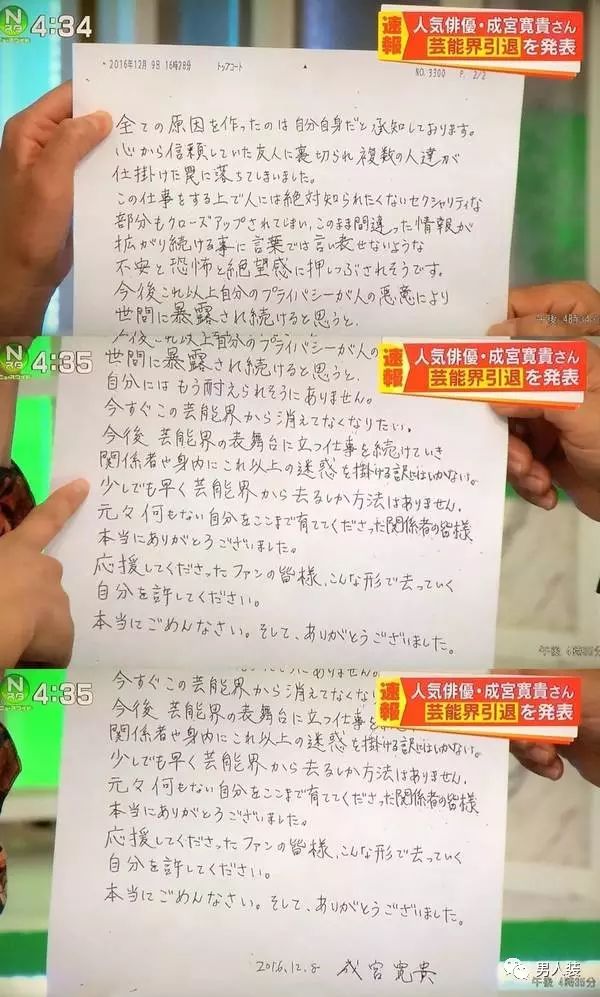 Nスタ
ニュースワイド
4:34
速報
人気俳優・成宮寛貴さん
芸能界引退を発表
2016年12月 9日 16時28分
トップコート
NO. 3300 P. 2/2
全ての原因を作ったのは自分自身だと承知しております。
心から信頼していた友人に裏切られ複数の人達が
仕掛けた罠に落ちてしまいました。
この仕事をする上で人には絶対知られたくないセクシャリティな
部分もクローズアップされてしまい、このまま間違った情報が
拡がり続ける事に言葉では言い表せないような
不安と恐怖と絶望感に押しつぶされそうです。
今後これ以上自分のプライバシーが人の悪意により
世間に暴露され続けると思うと、
午後 4時34分
Nスタ
ニュースワイド
4:35
速報
人気俳優・成宮寛貴さん
芸能界引退を発表
今後これ以上自分のプライバシーが人の
世間に暴露され続けると思うと、
自分にはもう耐えられそうにありません。
今すぐこの芸能界から消えてなくなりたい。
今後芸能界の表舞台に立つ仕事を続けていき
関係者や身内にこれ以上の迷惑を掛ける訳にはいかない。
少しでも早く芸能界から去るしか方法はありません。
元々何もない自分をここまで育ててくださった関係者の皆様
本当にありがとうございました。
応援してくださったファンの皆様、こんな形で去っていく
自分を許してください。
本当にごめんなさい。そして、ありがとうございました。
午後 4時35分
Nスタ
ニュースワイド
4:35
速報
人気俳優・成宮寛貴さん
芸能界引退を発表
今すぐこの芸能界から消えてなくな
今後芸能界の表舞台に立つ仕事を
関係者や身内にこれ以上の迷惑を掛ける訳にはいかない。
少しでも早く芸能界から去るしか方法はありません。
元々何もない自分をここまで育ててくださった関係者の皆様
本当にありがとうございました。
応援してくださったファンの皆様、こんな形で去っていく
自分を許してください。
本当にごめんなさい。そして、ありがとうございました。
2016.12.8 成宮寛貴
男人装
午後 4時35分